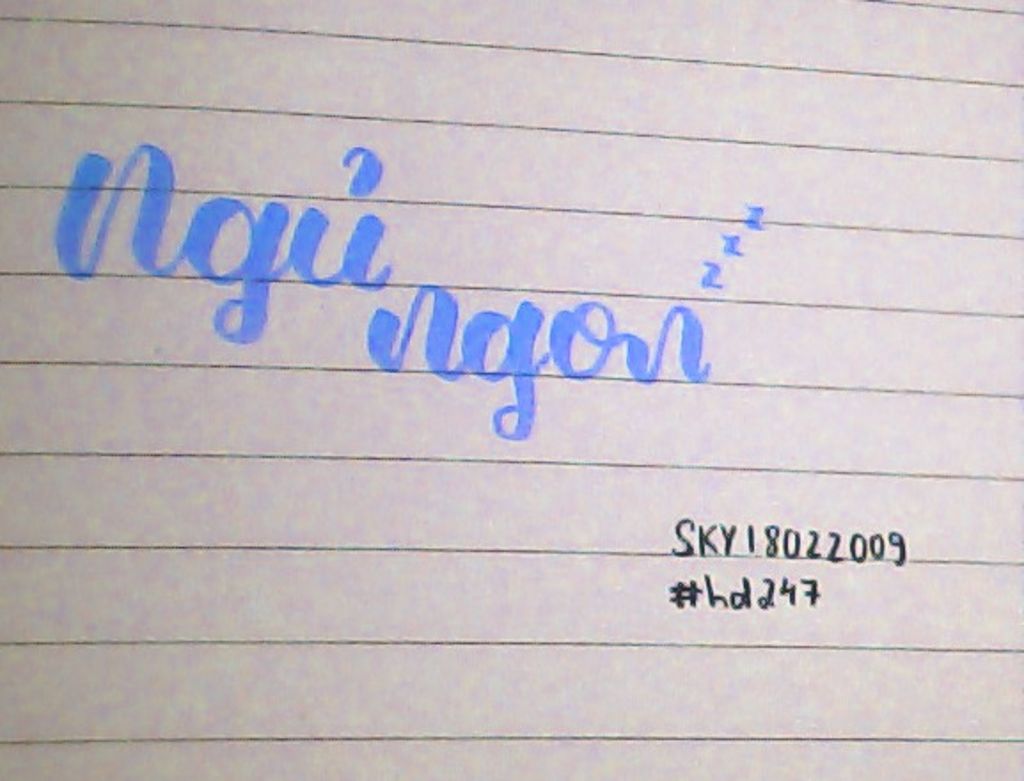 Ngủ
ngon
z z z
SKY18022009
#hd247